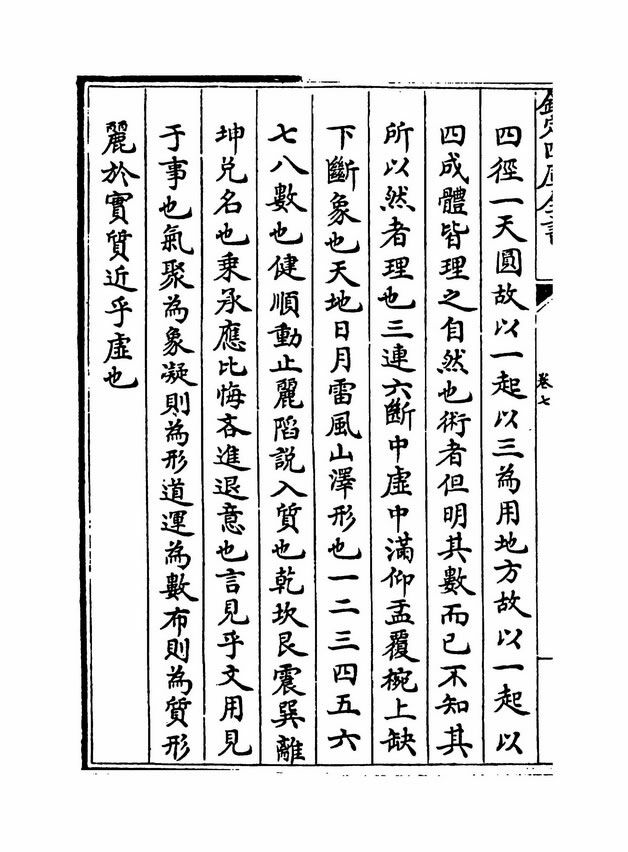 欽定四庫全書
卷七
四徑一天圓故以一起以三為用地方故以一起以
四成體皆理之自然也術者但明其數而已不知其
所以然者理也三連六斷中虛中滿仰盂覆椀上缺
下斷象也天地日月雷風山澤形也一二三四五六
七八數也健順動止麗陷説入質也乾坎艮震巽離
坤兑名也乗承應比悔吝進退意也言見乎文用見
于事也氣聚為象凝則為形道運為數布則為質形
麗於實質近乎虛也